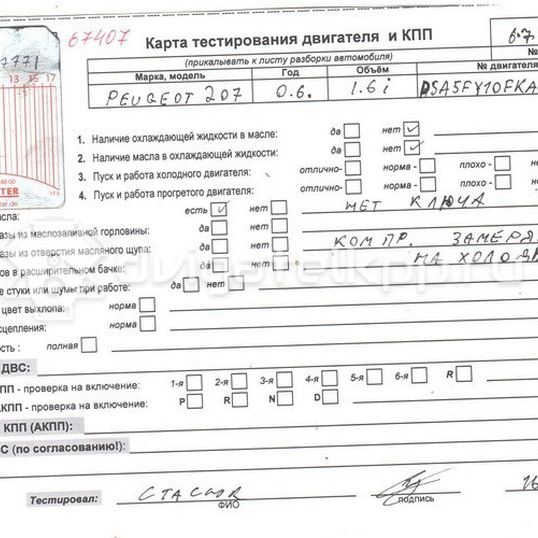 67407
Карта тестирования двигателя и КПП
67
№
7771
(прикалывать к листу разборки автомобиля)
13 15 17
Марка, модель Год Объём № двигателя
PEUGEOT 207 0.6. 1.6 i PSA5FY10FKA
1. Наличие охлаждающей жидкости в масле: да нет
2. Наличие масла в охлаждающей жидкости: да нет
3. Пуск и работа холодного двигателя: отлично- норма - плохо -
4. Пуск и работа прогретого двигателя: отлично- норма- плохо-
173
асла: есть нет НЕТ КЛЮЧА
азы из маслозаливной горловины: да нет
азы из отверстия масляного щупа: да нет КОМПР. ЗАМЕРЯ
ов в расширительном бачке: да нет НА ХОЛОД
dvigatelkpp.ru
е стуки или шумы при работе: да нет
цвет выхлопа: норма
сцепления: норма
ость : полная
ДВС:
ПП - проверка на включение: 1-я 2-я 3-я 4-я 5-я 6-я R
АКПП - проверка на включение: P R N D
КПП (АКПП):
С (по согласованию!):
Тестировал: СТАСЮК
ФИО подпись